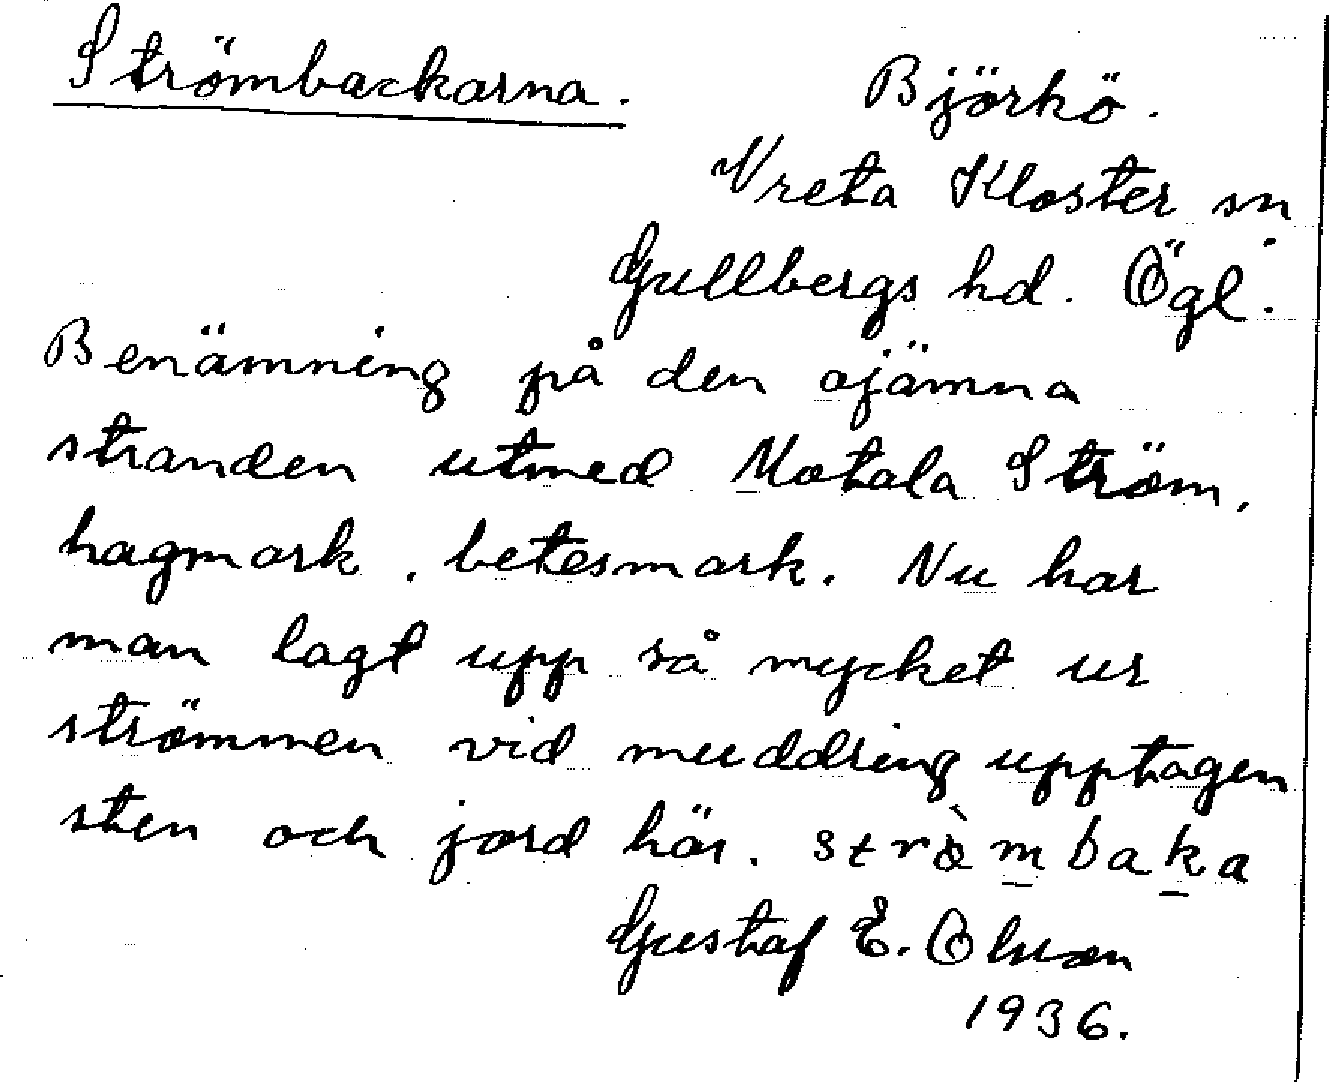 Strömbackarna.
Björkö.
Vreta Kloster sn
Gullbergs hd. Ögl.
Benämning på den ojämna
stranden utmed Motala Ström,
hagmark, betesmark. Nu har
man lagt upp så mycket ur
strömmen vid muddring upptagen
sten och jord här. strö̀mbaka
Gustaf E. Olsson
1936.